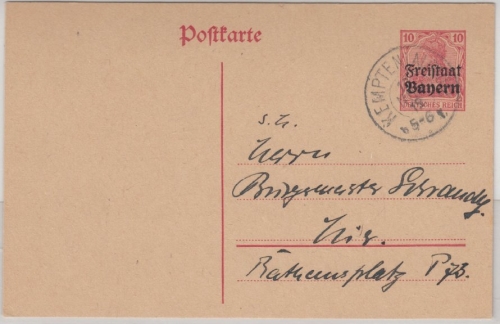 Postkarte
10 10
Freistaat
Bayern
DEUTSCHES REICH
KEMPTEN
5-6
s. H.
Herrn
Bürgermeister
Hier.
Rathausplatz